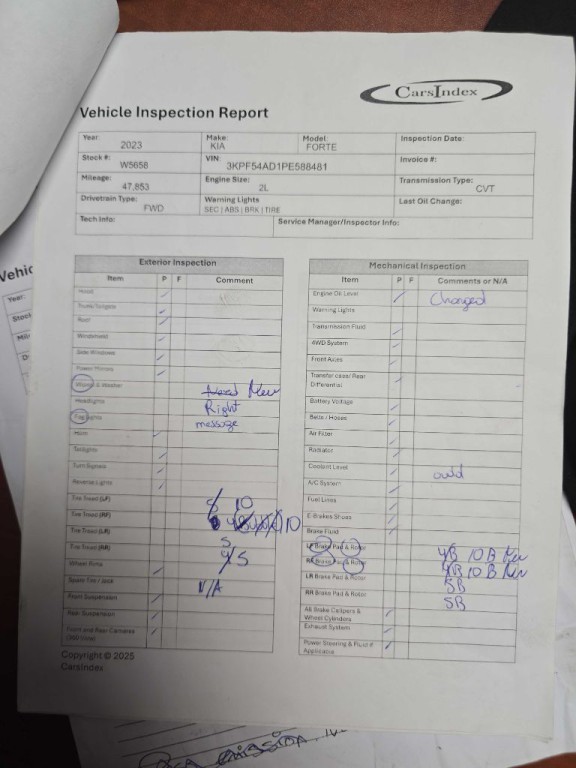 CarsIndex
Vehicle Inspection Report
Year: 2023 Make: KIA Model: FORTE Inspection Date:
Stock #: W5658 VIN: 3KPF54AD1PE588481 Invoice #:
Mileage: 47,853 Engine Size: 2L Transmission Type: CVT
Drivetrain Type: FWD Warning Lights SEC | ABS | BRK | TIRE Last Oil Change:
Tech Info: Service Manager/Inspector Info:
Exterior Inspection
Item P F Comment
Hood
Trunk/Tailgate
Roof
Windshield
Side Windows
Power Mirrors
Wipers & Washer New
Headlights Right
Fog Lights message
Horn
Taillights
Turn Signals
Reverse Lights
Tire Tread (LF) 8 10
Tire Tread (RF) 10
Tire Tread (LR) 5
Tire Tread (RR) 5
Wheel Rims
Spare Tire / Jack N/A
Front Suspension
Rear Suspension
Front and Rear Cameras
Mechanical Inspection
Item P F Comments or N/A
Engine Oil Level Changed
Warning Lights
Transmission Fluid
4WD System
Front Axles
Transfer case/ Rear
Differential
Battery Voltage
Belts / Hoses
Air Filter
Radiator
Coolant Level
A/C System
Fuel Lines
E-Brakes Shoes
Brake Fluid
LF Brake Pad & Rotor 4B 10 B New
RF Brake Pad & Rotor 4B 10 B New
LR Brake Pad & Rotor 5B
RR Brake Pad & Rotor 5B
All Brake Calipers &
Wheel Cylinders
Exhaust System
Power Steering & Fluid if
Applicable
Copyright © 2025
CarsIndex
Vehic
Year:
Stock
emission